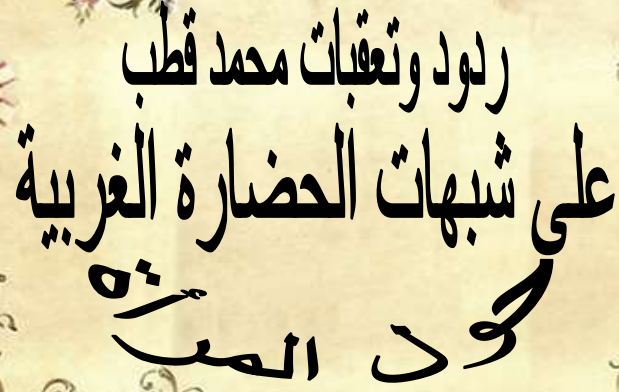 ردود وتعقبات محمد قطب
على شبهات الحضارة الغربية